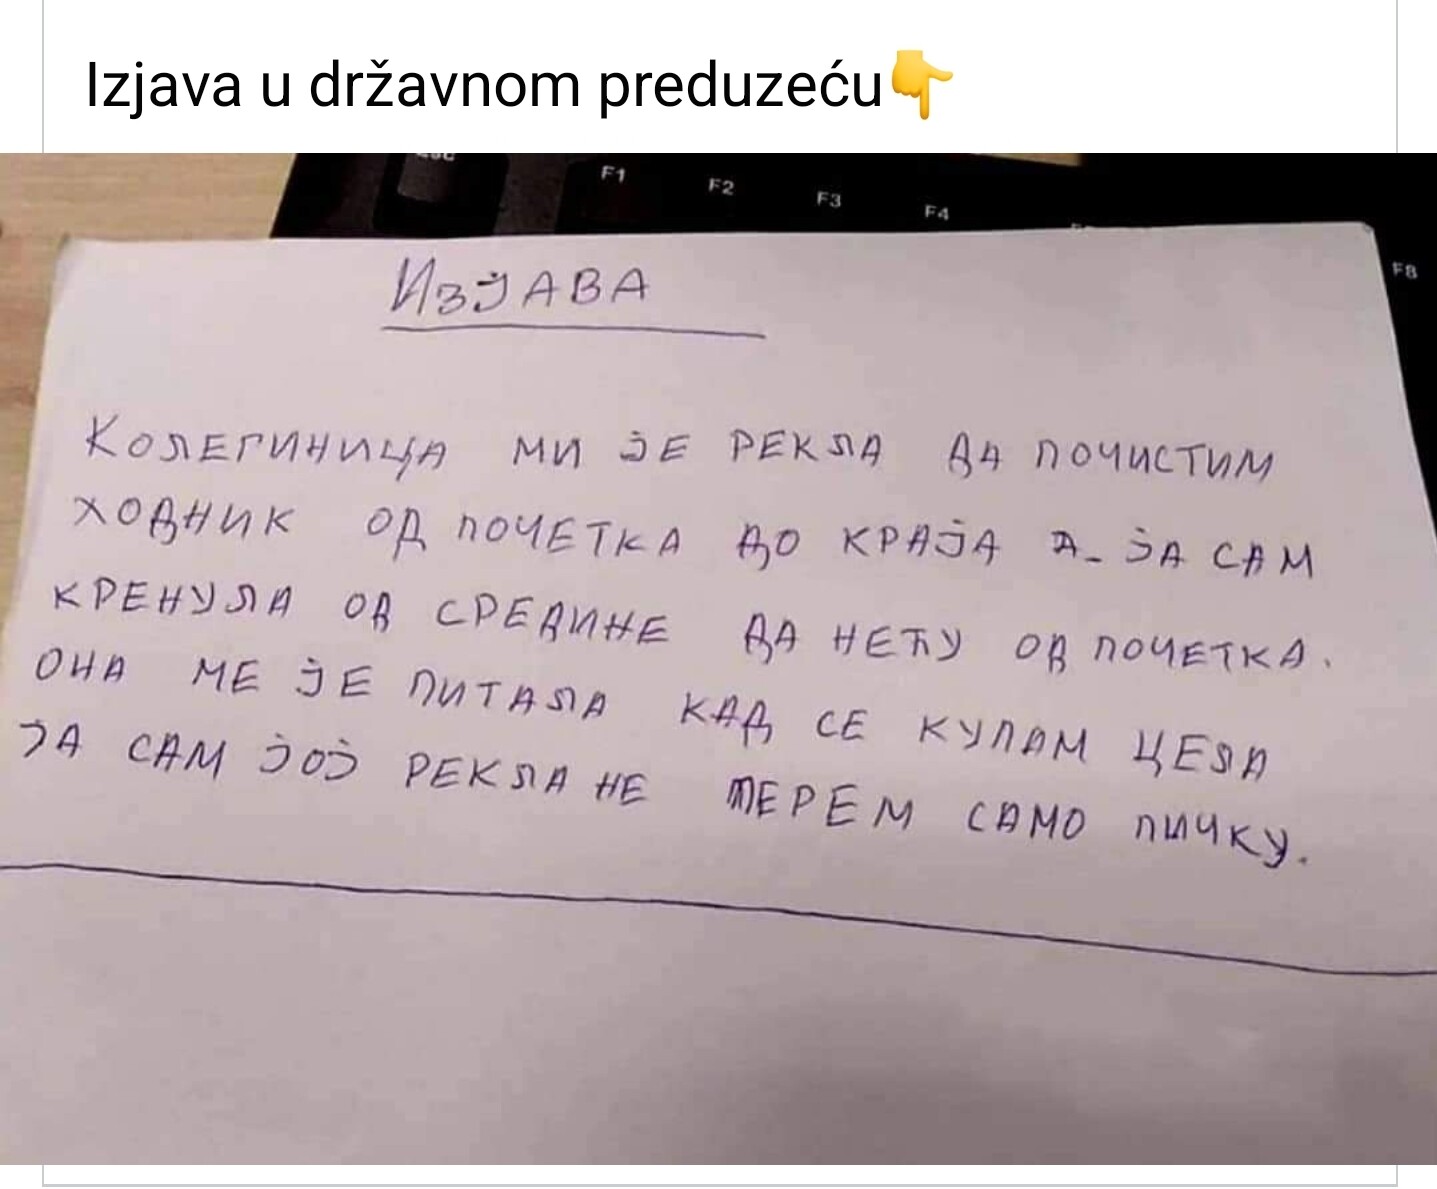 Izjava u državnom preduzeću👇
esc F1 F2 F3 F4 F8
Изјава
Колегиница ми је рекла да почистим
ходник од почетка до краја а- ја сам
кренула од средине да нећу од почетка.
она ме је питала кад се купам цела
ја сам јој рекла не перем само пичку.